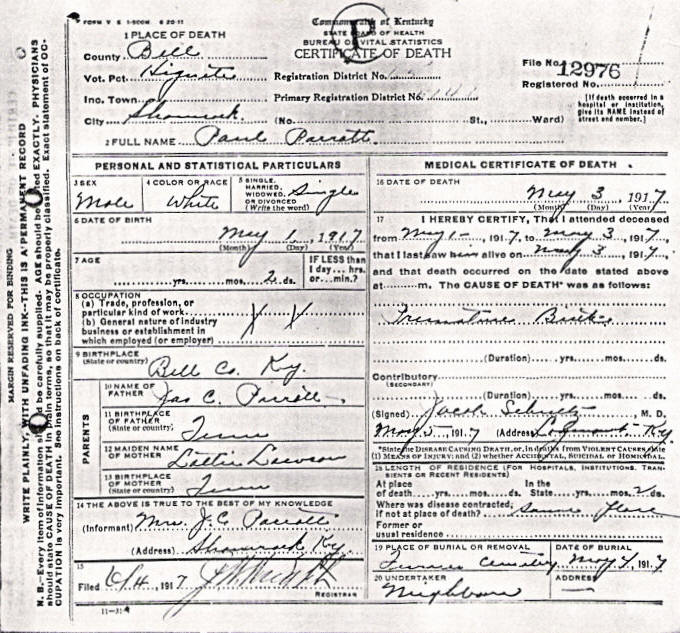 FORM V S 1-500M 6 20-11
Commonwealth of Kentucky
STATE BOARD OF HEALTH
BUREAU OF VITAL STATISTICS
CERTIFICATE OF DEATH
1 PLACE OF DEATH
County Bell
Vot. Pct.
Inc. Town
City Shamrock (No. St., Ward)
Registration District No.
Primary Registration District No.
File No. 12976
Registered No.
[If death occurred in a hospital or institution, give its NAME instead of street and number.]
2 FULL NAME Paul Parrott
PERSONAL AND STATISTICAL PARTICULARS
3 SEX
Male
4 COLOR OR RACE
White
5 SINGLE, MARRIED, WIDOWED, OR DIVORCED (Write the word)
Single
6 DATE OF BIRTH
May 1, 1917
(Month) (Day) (Year)
7 AGE
yrs. mos. 2 ds.
IF LESS than 1 day... hrs. or... min.?
8 OCCUPATION
(a) Trade, profession, or particular kind of work
(b) General nature of industry business or establishment in which employed (or employer)
X X
9 BIRTHPLACE
(State or country)
Bell Co. Ky.
PARENTS
10 NAME OF FATHER
Jas C. Parrott
11 BIRTHPLACE OF FATHER
(State or country)
Tenn
12 MAIDEN NAME OF MOTHER
Lawson
13 BIRTHPLACE OF MOTHER
Tenn
14 THE ABOVE IS TRUE TO THE BEST OF MY KNOWLEDGE
(Informant) Mrs. J.C. Parrott
(Address) Shamrock Ky.
15
Filed 6/4, 1917
REGISTRAR
11-314
MEDICAL CERTIFICATE OF DEATH
16 DATE OF DEATH
May 3, 1917
(Month) (Day) (Year)
17 I HEREBY CERTIFY, That I attended deceased
from May 1-, 1917, to May 3, 1917,
that I last saw him alive on May 3, 1917
and that death occurred on the date stated above
at m. The CAUSE OF DEATH* was as follows:
Premature Birth
(Duration) yrs. mos. ds.
Contributory
(SECONDARY)
(Duration) yrs. mos. ds.
(Signed) Jacob Schultz, M. D.
May 5, 1917 (Address) Ky
*State the DISEASE CAUSING DEATH, or, in deaths from VIOLENT CAUSES, state (1) MEANS OF INJURY; and (2) whether ACCIDENTAL, SUICIDAL or HOMICIDAL.
18 LENGTH OF RESIDENCE (FOR HOSPITALS, INSTITUTIONS, TRANSIENTS OR RECENT RESIDENTS)
At place of death yrs. mos. ds. In the State yrs. mos. 2 ds.
Where was disease contracted, if not at place of death? Same place
Former or usual residence
19 PLACE OF BURIAL OR REMOVAL
Cemetery
DATE OF BURIAL
May 4, 1917
20 UNDERTAKER
Neighbors
ADDRESS
MARGIN RESERVED FOR BINDING
WRITE PLAINLY, WITH UNFADING INK—THIS IS A PERMANENT RECORD
N. B.—Every item of information should be carefully supplied. AGE should be stated EXACTLY. PHYSICIANS should state CAUSE OF DEATH in plain terms, so that it may be properly classified. Exact statement of OCCUPATION is very important. See instructions on back of certificate.